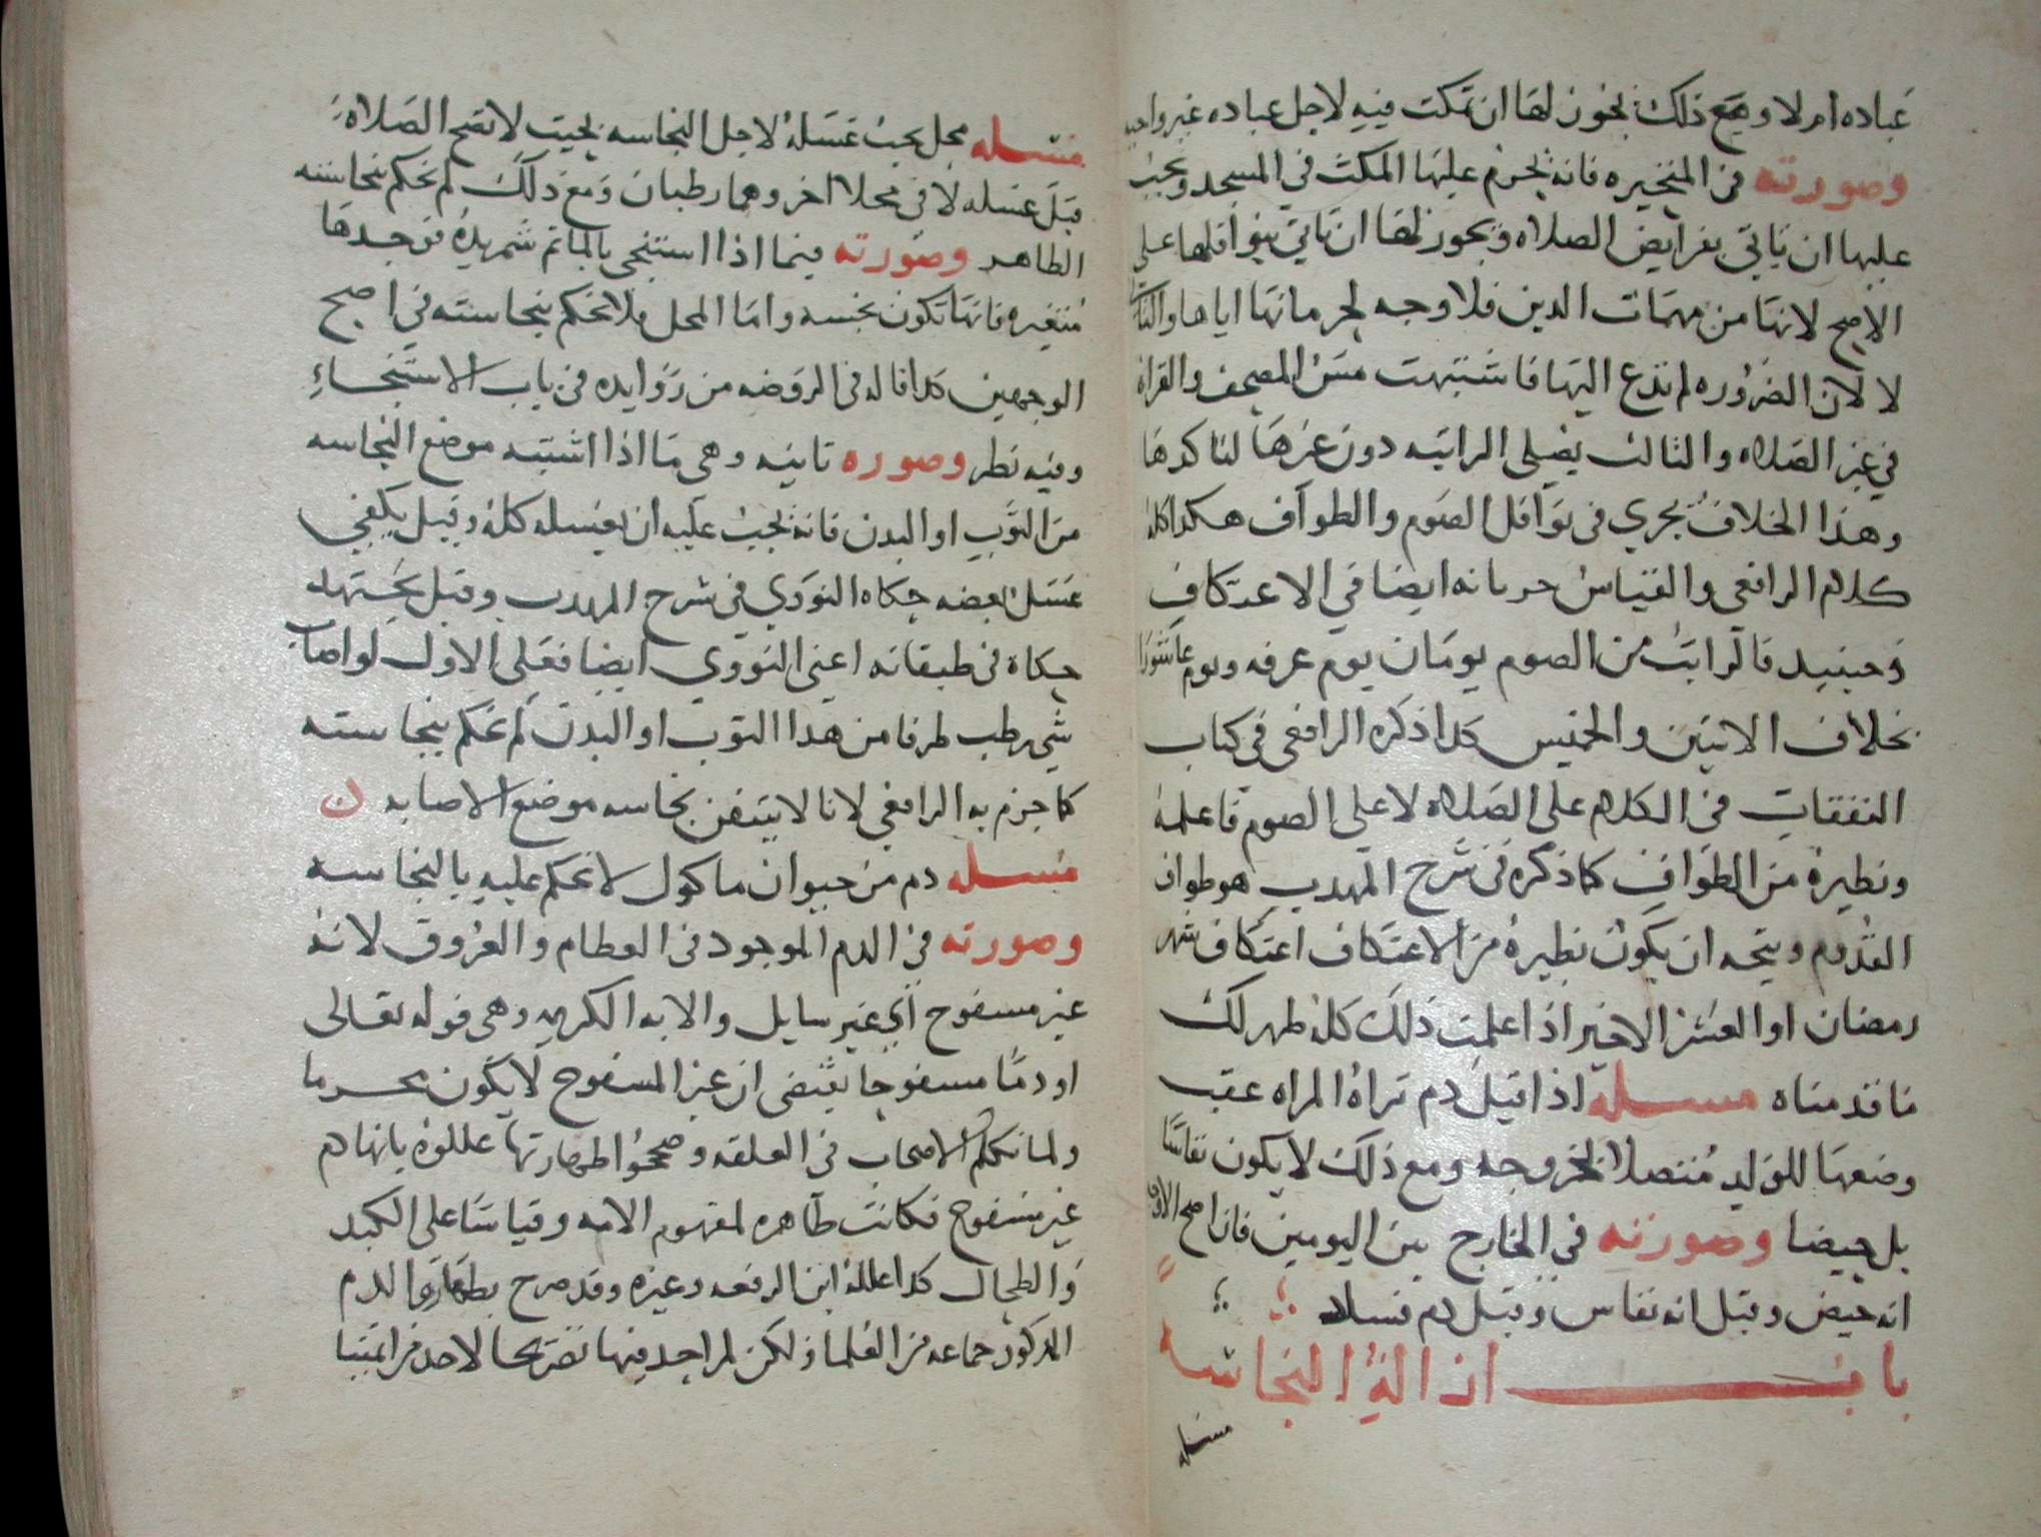 عباده ام لا ومع ذلك يجوز لها ان تمكث فيه لاجل عباده غير واجبه
وصورته في المتحيره فانه يحرم عليها المكث في المسجد ويجب
عليها ان تاتي بفرايض الصلاه ويجوز لها ان تاتي بنوافلها على
الاصح لانها من مهمات الدين فلا وجه لحرمانها اياها والثاني
لا لان الضروره لم تدع اليها فاشبهت مس المصحف والقراة
في غير الصلاه والثالث يصلى الراتبه دون غيرها لتاكدها
وهذا الخلاف يجري في نوافل الصوم والطواف هكذا كله
كلام الرافعي والقياس جريانه ايضا في الاعتكاف
وحينيذ فالراتب من الصوم يومان يوم عرفه ويوم عاشورا
بخلاف الاثنين والخميس كذا ذكره الرافعي في كتاب
النفقات في الكلام على الصلاه لا على الصوم فاعلمه
ونظيره من الطواف كما ذكره في شرح المهدب هو طواف
القدوم ويتجه ان يكون نظيره من الاعتكاف اعتكاف شهر
رمضان او العشر الاخير اذا علمت ذلك كله ظهر لك
ما قدمناه مسله اذا قيل دم تراه المراه عقب
وضعها للولد متصلا بخروجه ومع ذلك لا يكون نفاسا
بل حيضا وصورته في الخارج بين اليومين فان اصح الاوجه
انه حيض وقيل انه نفاس وقيل دم فساد
باب ازالة النجاسه
مسله
مسله محل يجب غسله لاجل النجاسه بحيث لا تصح الصلاة
قبل غسله لاقى محلا اخر وهما رطبان ومع ذلك لم نحكم بنجاسه
الطاهر وصورته فيما اذا استنجى بالما ثم شم يده فوجدها
متغيره فانها تكون نجسه واما المحل فلا نحكم بنجاسته في اصح
الوجهين كذا قاله في الروضه من زوايده في باب الاستنجاء
وفيه نظر وصوره ثانيه وهى ما اذا اشتبه موضع النجاسه
من الثوب او البدن فانه يجب عليه ان يغسله كله وقيل يكفي
غسل بعضه حكاه النووي في شرح المهدب وقيل يجتهد
حكاه في طبقاته اعني النووي ايضا فعلى الاول لو اصاب
شي رطب طرفا من هذا الثوب او البدن لم نحكم بنجاسته
كما جزم به الرافعي لانا لا نتيقن نجاسه موضع الاصابه ن
مسله دم من حيوان ماكول لا نحكم عليه بالنجاسه
وصورته في الدم الموجود في العظام والعروق لانه
غير مسفوح اي غير سايل والايه الكريمه وهي قوله تعالى
او دما مسفوحا يقتضى ان غير المسفوح لا يكون محرما
ولما تكلم الاصحاب في العلقه وصححوا طهارتها عللوه بانها دم
غير مسفوح فكانت طاهره لمفهوم الايه وقياسا على الكبد
والطحال كذا علله ابن الرفعه وغيره وقد صرح بطهارة الدم
المذكور جماعه من العلما ولكن لم اجد فيها تصريحا لاحد من ايمتنا